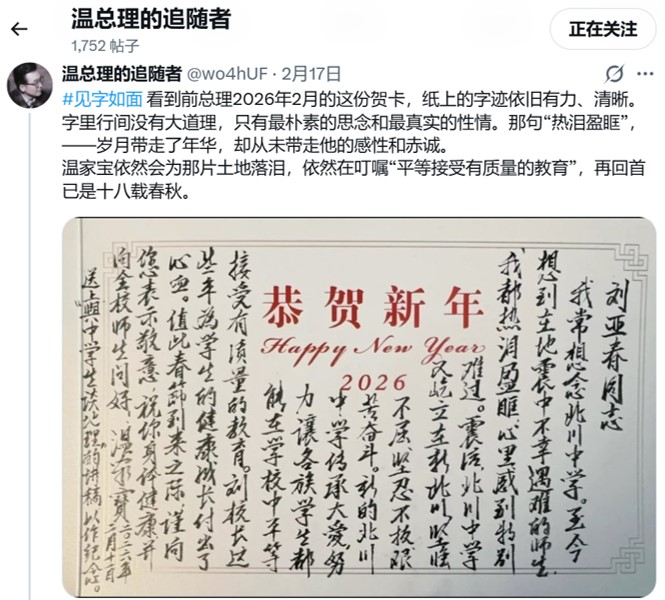 温总理的追随者
1,752 帖子
正在关注
温总理的追随者 @wo4hUF · 2月17日
#见字如面 看到前总理2026年2月的这份贺卡，纸上的字迹依旧有力、清晰。
字里行间没有大道理，只有最朴素的思念和最真实的性情。那句“热泪盈眶”，
——岁月带走了年华，却从未带走他的感性和赤诚。
温家宝依然会为那片土地落泪，依然在叮嘱“平等接受有质量的教育”，再回首
已是十八载春秋。
恭贺新年
Happy New Year
2026
刘亚春同志
我常想念北川中学。至今
想到在地震中不幸遇难的师生
我都热泪盈眶，心里感到特别
难过。震后北川中学
又屹立在新北川，坚强
不屈坚忍不拔艰
苦奋斗。新的北川
中学传承大爱努
力让各族学生都
能在学校中平等
接受有质量的教育。刘校长这
些年为学生的健康成长付出了
心血。值此春节到来之际，谨向
您表示敬意，祝你身体健康并
向全校师生问好。温家宝
二〇二六年
二月
送上与中学生谈地理的讲稿以作纪念。